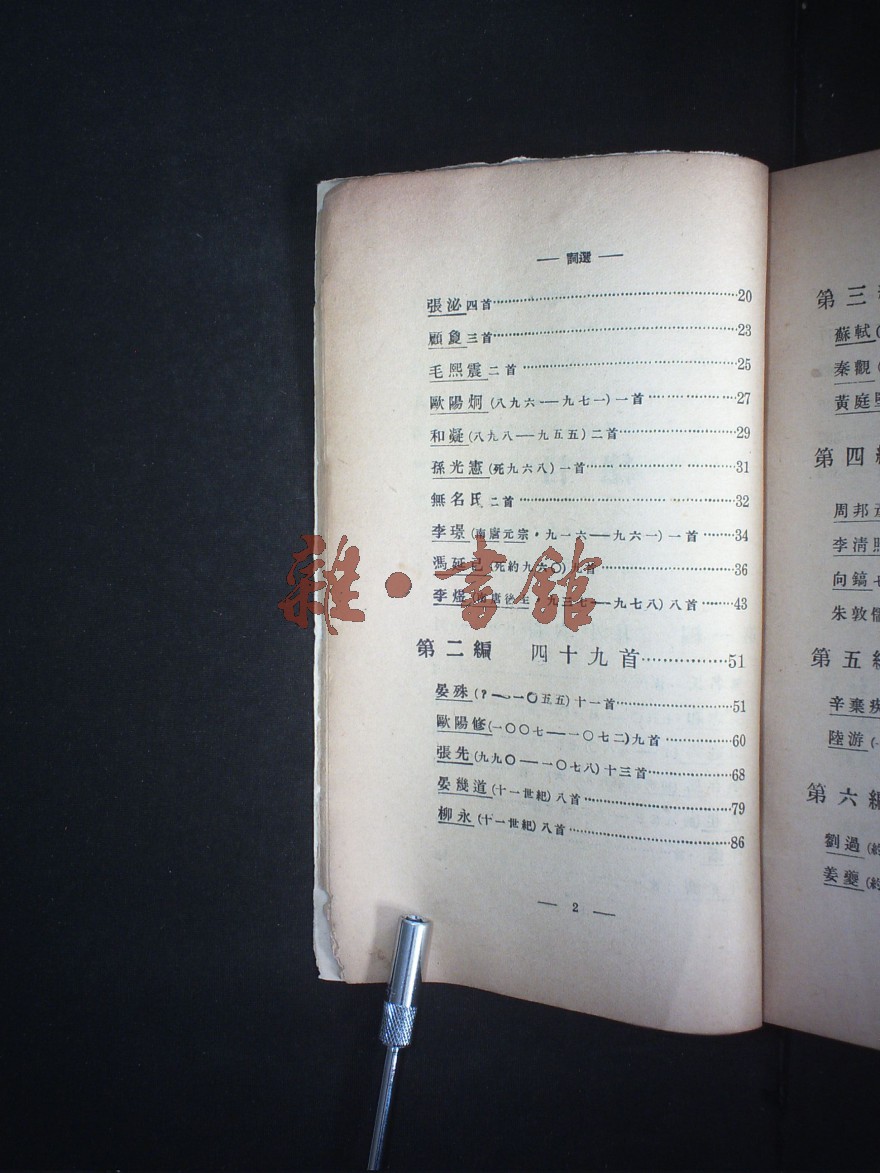 ── 詞選 ──
張泌 四首……20
顧敻 三首……23
毛熙震 二首……25
歐陽炯 (八九六—九七一) 一首……27
和凝 (八九八—九五五) 二首……29
孫光憲 (死九六八) 一首……31
無名氏 二首……32
李璟 (南唐元宗·九一六—九六一) 一首……34
馮延巳 (死約九六〇) 九首……36
李煜 (南唐後主·九三七—九七八) 八首……43
第二編 四十九首……51
晏殊 (?—一〇五五) 十一首……51
歐陽修 (一〇〇七—一〇七二) 九首……60
張先 (九九〇—一〇七八) 十三首……68
晏幾道 (十一世紀) 八首……79
柳永 (十一世紀) 八首……86
── 2 ──
第三
蘇軾(
秦觀(
黃庭
第四
周邦
李清照
向鎬
朱敦儒
第五
辛棄疾
陸游(
第六編
劉過(約
姜夔(約
雜·書館